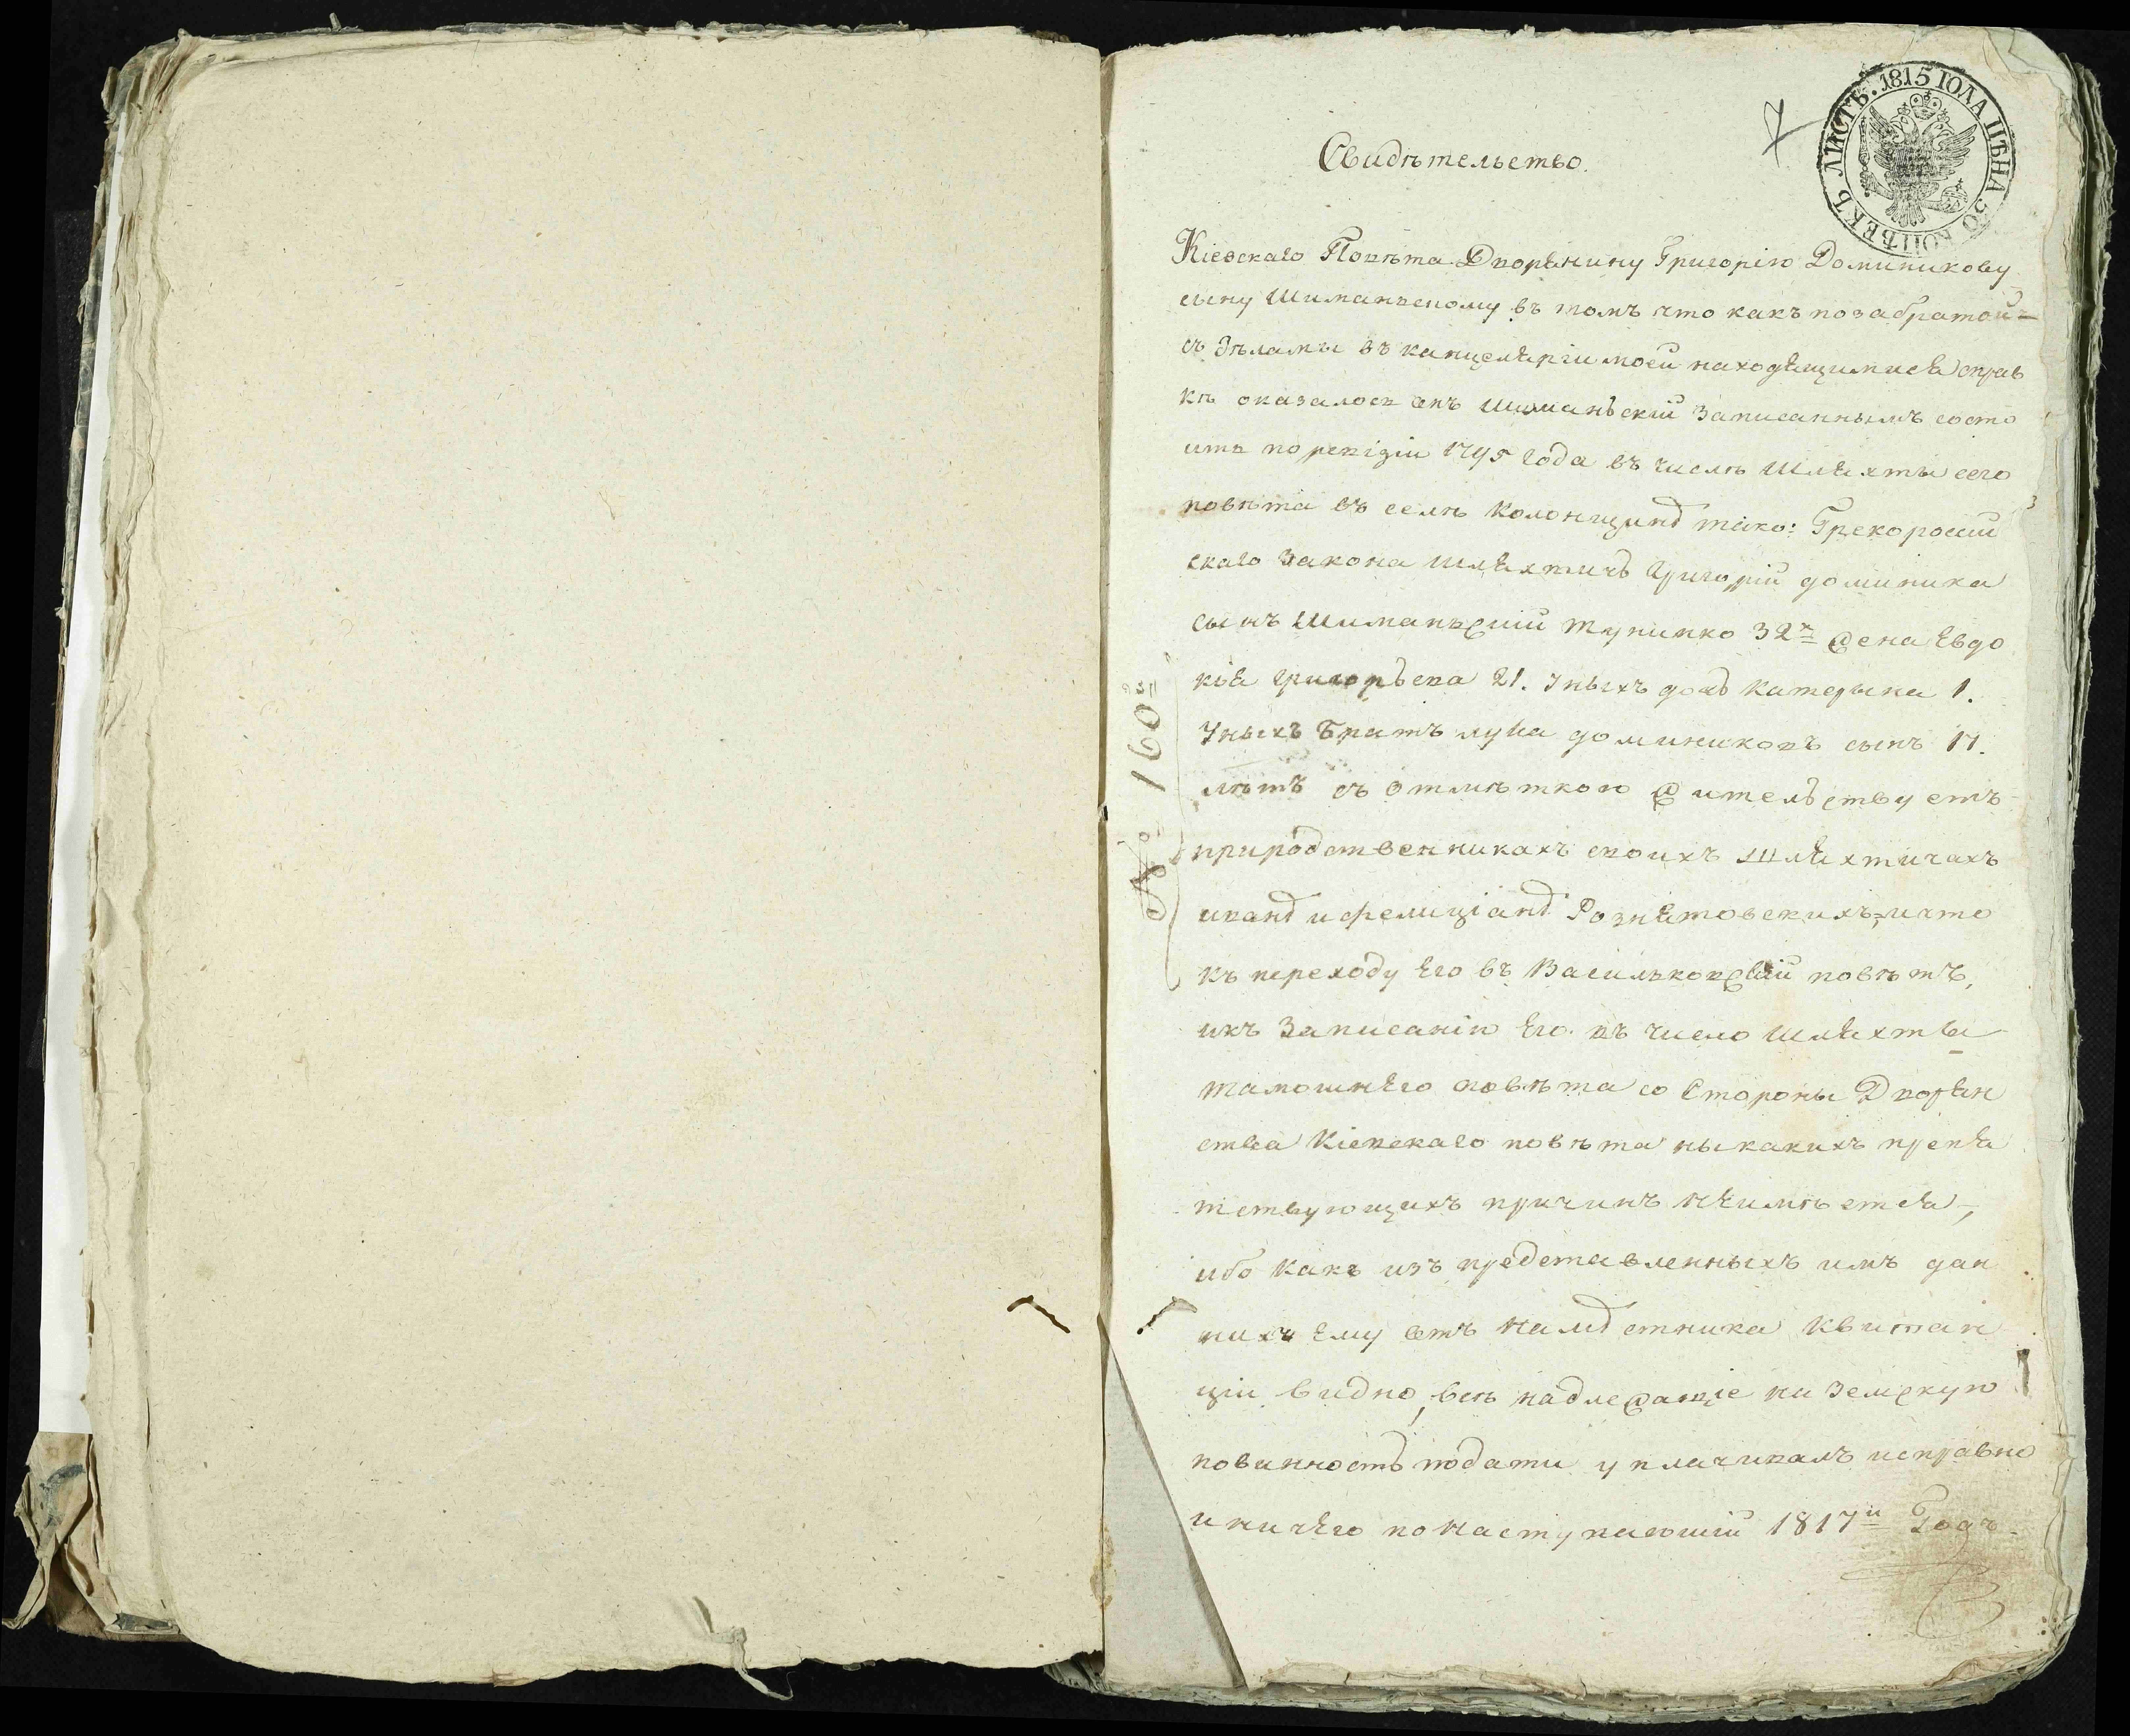 ЛИСТЪ. 1815 ГОДА ЦѢНА 50 КОПѢЕКЪ
7
Свидѣтельство.
Кіевскаго Повѣта Дворянину Григорію Доминикову
сыну Шиманьскому въ томъ что какъ по забратой
съ дѣламы въ канцеляріи моей находящимися справ
кѣ оказалось онъ Шиманьскій записаннымъ состо
итъ по ревізіи 1795 года въ числѣ Шляхты сего
повѣта въ селѣ Колонщинѣ тако: Грекороссій
скаго закона шляхтичъ Григорій доминика
сынъ Шиманьскій 32х жена Евдо
кія Григорьева 21. Уныхъ дочь Катерына 1.
Уныхъ Братъ лука доминиковъ сынъ 17.
лѣтъ съ отмѣткою жительствуетъ
при родственникахъ своихъ шляхтичахъ
иванѣ и фелиціанѣ Рознятовскихъ, и что
къ переходу Его въ Васильковскій повѣтъ,
икъ Записанію Его въ число шляхты
тамошнЕго повѣта со Стороны Дворян
ства Кіевскаго повѣта ныкакихъ препя
тствующихъ причинъ нЕимѣется,
ибо какъ изъ представленныхъ имъ дан
ныхъ Ему отъ намѣстника квитан
ціи видно, всѣ надлежащіе на Земскую
повинность подати уплачивалъ исправно
и ничЕго по наступающій 1817й Годъ
№ 160й